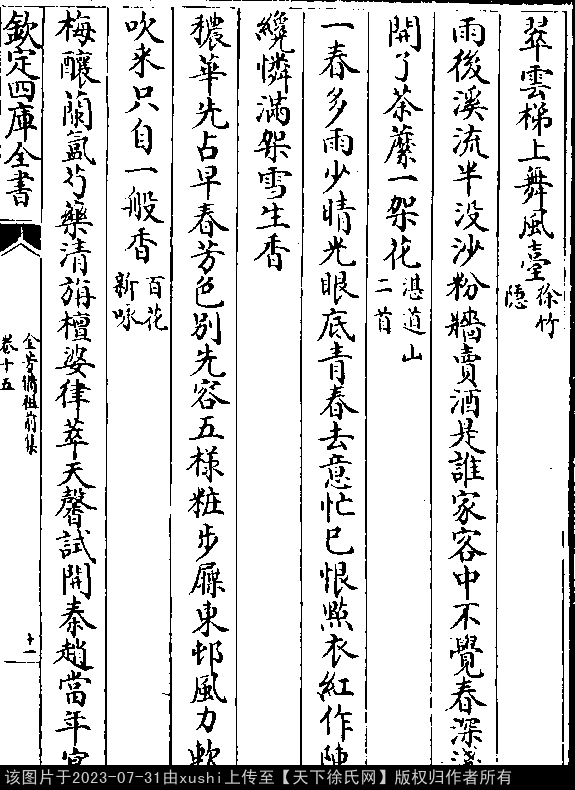 翠雲梯上舞風臺徐竹隱
雨後溪流半没沙粉牆賣酒是誰家客中不覺春深淺
開了荼蘼一架花湛道山二首
一春多雨少晴光眼底青春去意忙已恨點衣紅作陣
纔憐滿架雪生香
穠華先占早春芳色别先容五様粧步屧東邨風力軟
吹来只自一般香百花新咏
梅釀蘭氲芍藥清旃檀婆律萃天馨試開秦趙當年
欽定四庫全書
全芳備祖前集
卷十五
十一
该图片于2023-07-31由xushi上传至【天下徐氏网】版权归作者所有